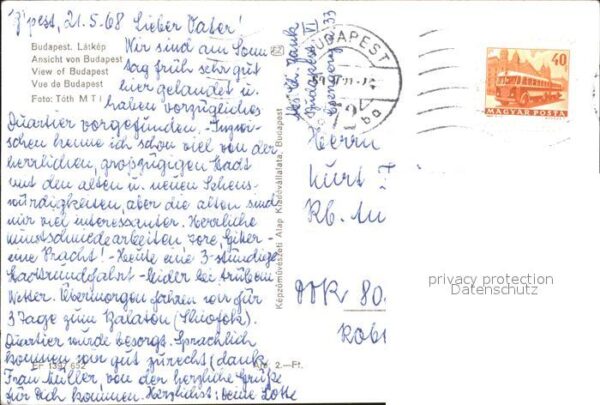 B'pest, 21.5.68 Lieber Vater!
Budapest. Látkép
Ansicht von Budapest
View of Budapest
Vue de Budapest
Foto: Tóth M T I
Wir sind am Sonn
tag früh sehr gut
hier gelandet u.
haben vorzügliches
Quartier vorgefunden. - Inzwi-
schen kenne ich schon viel von der
herrlichen, großzügigen Stadt
mit den alten u. neuen Sehens-
würdigkeiten, aber die alten sind
mir viel interessanter. Herrliche
Kunstschmiedearbeiten, Gitter -
eine Pracht! - Heute eine 3-stündige
Stadtrundfahrt - leider bei trübem
Wetter. Übermorgen fahren wir für
3 Tage zum Balaton (Shiofok).
Quartier wurde besorgt. Sprachlich
kommen wir gut zurecht (dank
Frau Müller, von der herzliche Grüße
für Dich kommen. Herzlichst: Deine Lotte
2.—Ft.
Képzőművészeti Alap Kiadóvállalata, Budapest
Budapest VI
33
BUDAPEST
72
40
MAGYAR POSTA
Herrn
Kurt
80
privacy protection
Datenschutz